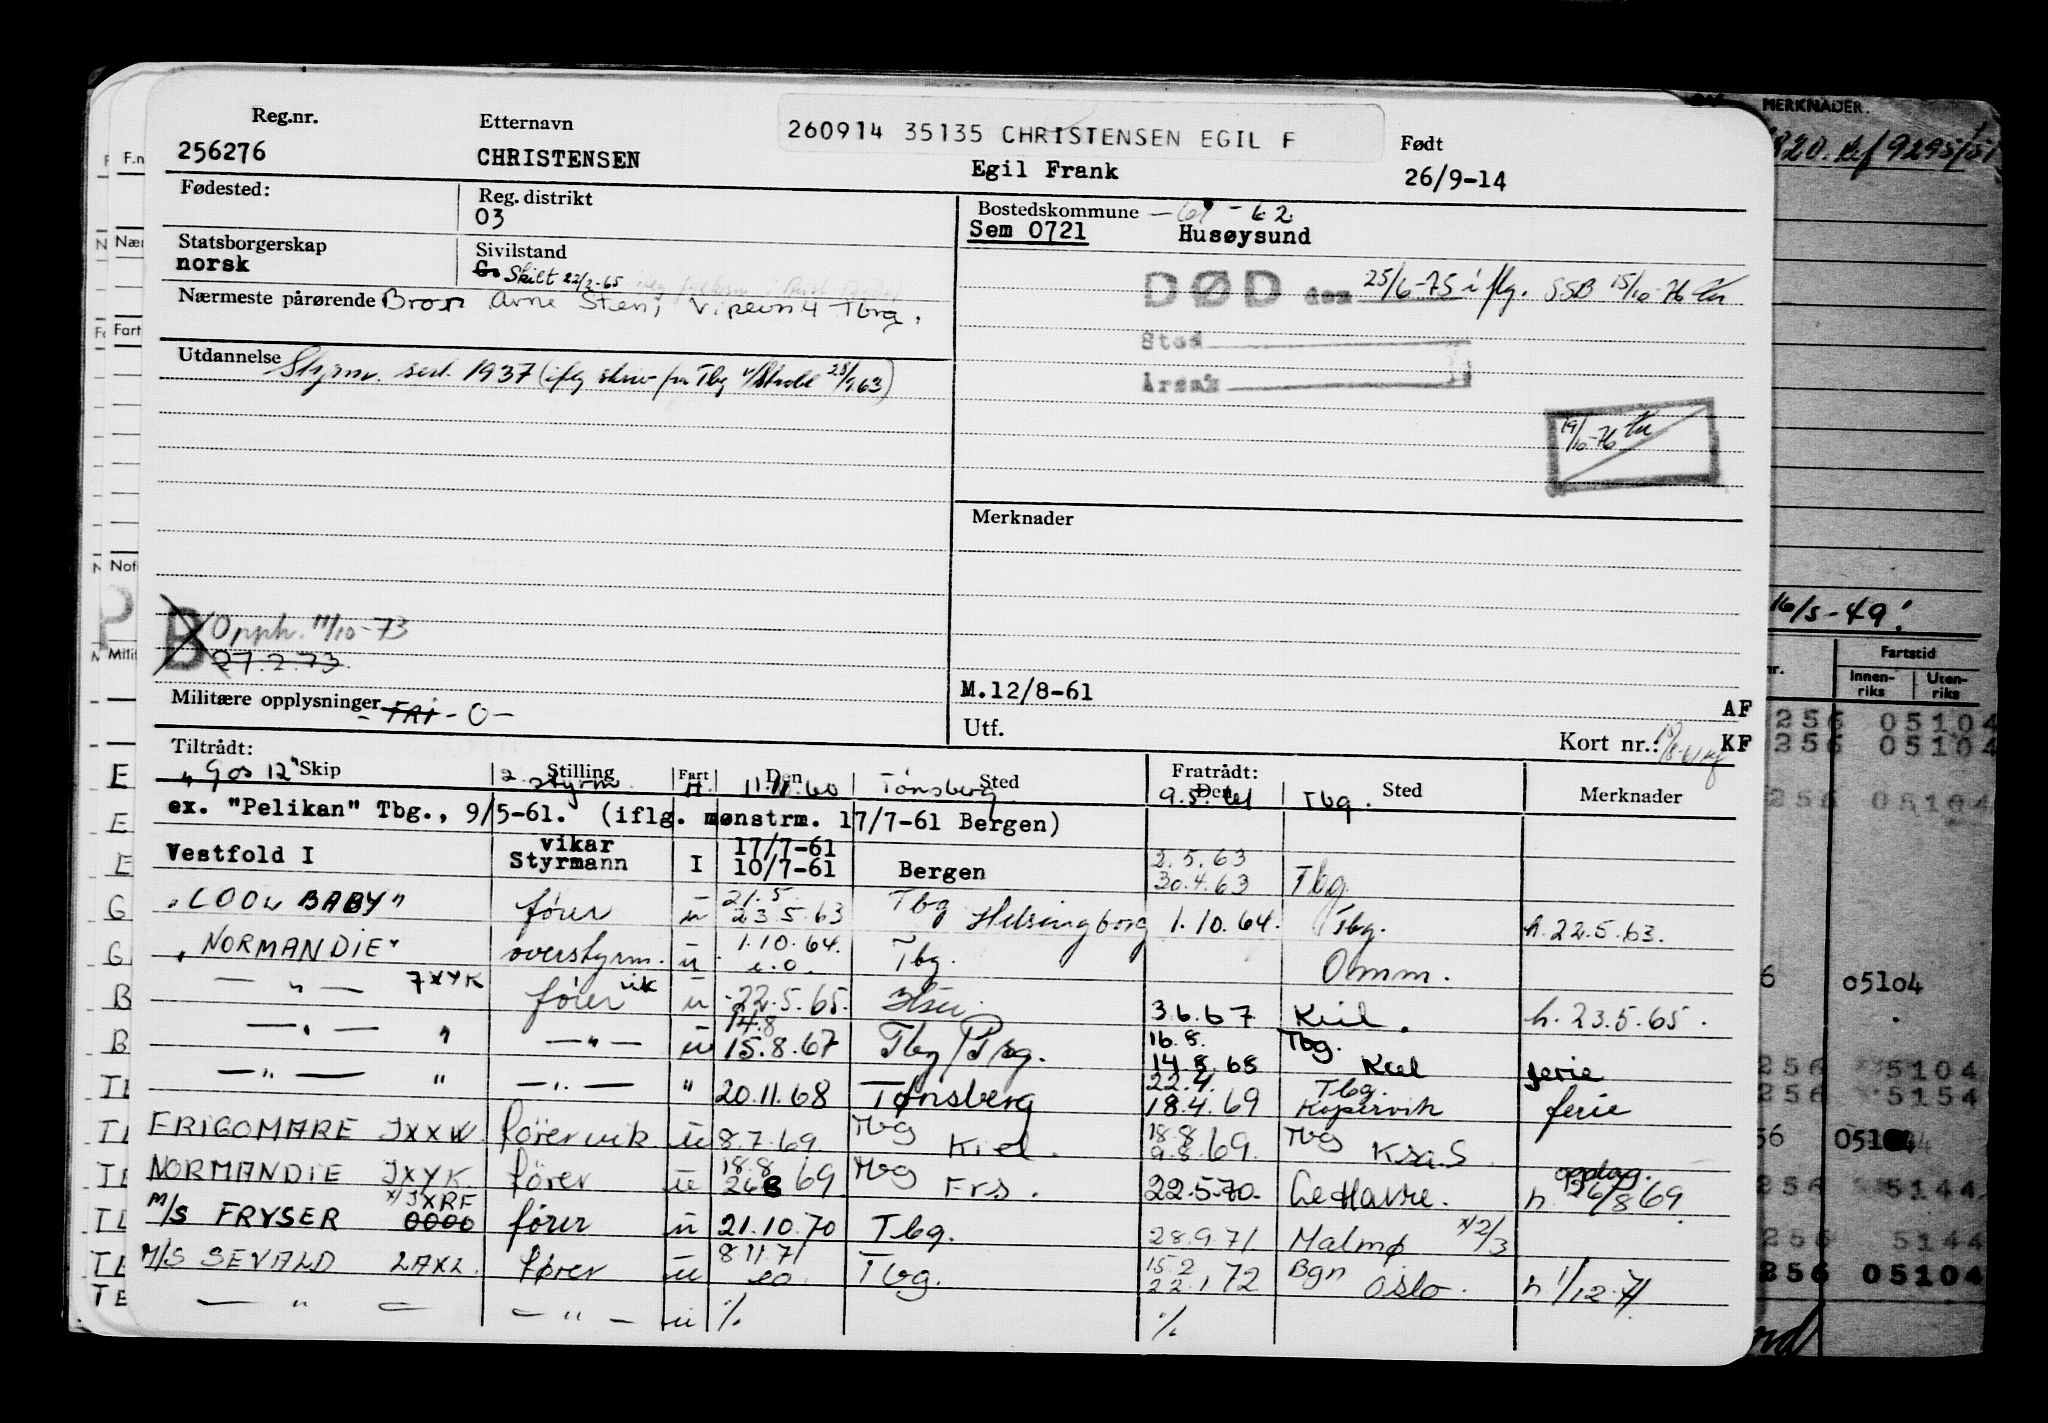 260914 35135 CHRISTENSEN EGIL F
Reg.nr. Etternavn Født
256276 CHRISTENSEN Egil Frank 26/9-14
Fødested: Reg. distrikt Bostedskommune - 61 - 62
03 Sem 0721 Husøysund
Statsborgerskap Sivilstand
norsk Skilt 22/2-65
DØD den 25/6-75 iflg. SSB 15/10-76
Nærmeste pårørende Bror Arne Sten, Tbrg.
Sted
Utdannelse Styrm. sert. 1937 (iflg skriv fra Tbg 1963)
Årsak
19/10-76
Merknader
B Opph. 11/10-73
27.2.73
Militære opplysninger - FRI - 0 -
M.12/8-61 AF
Utf. Kort nr.: KF
Tiltrådt: Fratrådt:
Skip Stilling Fart Den Sted Den Sted Merknader
"Gos 12" 2. styrm 11.11.60 Tønsberg 9.5.61 Tbg.
ex. "Pelikan" Tbg., 9/5-61. (iflg. mønstrm. 17/7-61 Bergen)
vikar 17/7-61 2.5.63
Vestfold I Styrmann I 10/7-61 Bergen 30.4.63 Tbg.
21.5
"COOL BABY" fører u 23.5.63 Tbg Helsingborg 1.10.64. Tbg. h.22.5.63.
1.10.64.
"NORMANDIE" overstyrm. u e.o. Tbg. Omm.
- " - JXYK fører vik u 22.5.65. 3.6.67 Kiel. h. 23.5.65.
14.8 16.8. Tbg.
- " - " - " - u 15.8.67 Tbg 14.8.68 Kiel ferie
22.4. Tbg.
- " - " - " - " 20.11.68 Tønsberg 18.4.69 Kopervik ferie
FRIGOMARE JXXW fører vik u 8.7.69. Tbg Kiel. 18.8 9.8.69. Tbg Krsa.S
18.8 oppdag.
NORMANDIE JXYK fører u 26.8 69 Tbg Frs. 22.5.70. Le Havre. h. 26/8 69.
x/JXRF
M/S FRYSER 0000 fører u 21.10.70 Tbg. 28.9.71. Malmø x/2/3
8.11.71 15.2 Bgn
M/S SEVALD LAXL. fører u eo. Tbg. 22.1.72 Oslo. h 1/12.71.
- " - - " - u % %
MERKNADER.
9295/51
16/5-49!
Fartstid
Innen-
riks
Uten-
riks
256 05104
256 05104
256 05104
6 05104
256 5104
256 5154
56 05144
256 5144
256 5144
256 05104
F.n
Nær
Fart
Not
Milit
E
E
E
G
G
B
B